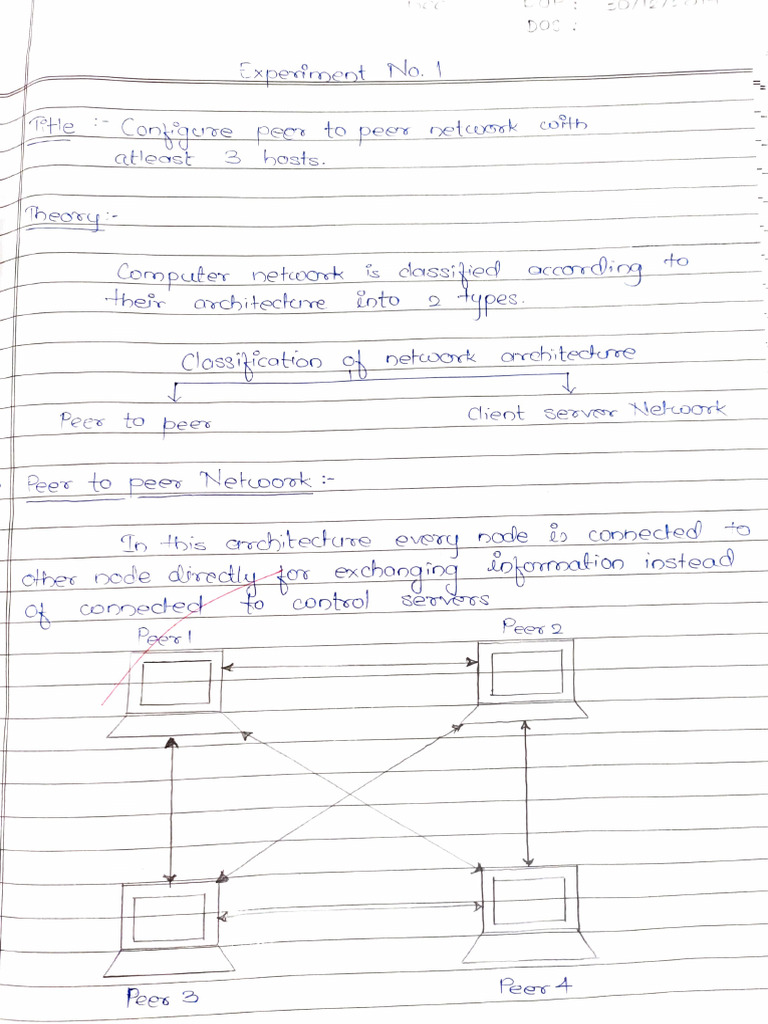 DOC :
Experiment No. 1
Title :- Configure peer to peer network with
atleast 3 hosts.
Theory :-
Computer network is classified according to
their architecture into 2 types.
Classification of network architecture
Peer to peer
Client server Network
Peer to peer Network :-
In this architecture every node is connected to
other node directly for exchanging information instead
of connected to control servers
Peer 1
Peer 2
Peer 3
Peer 4